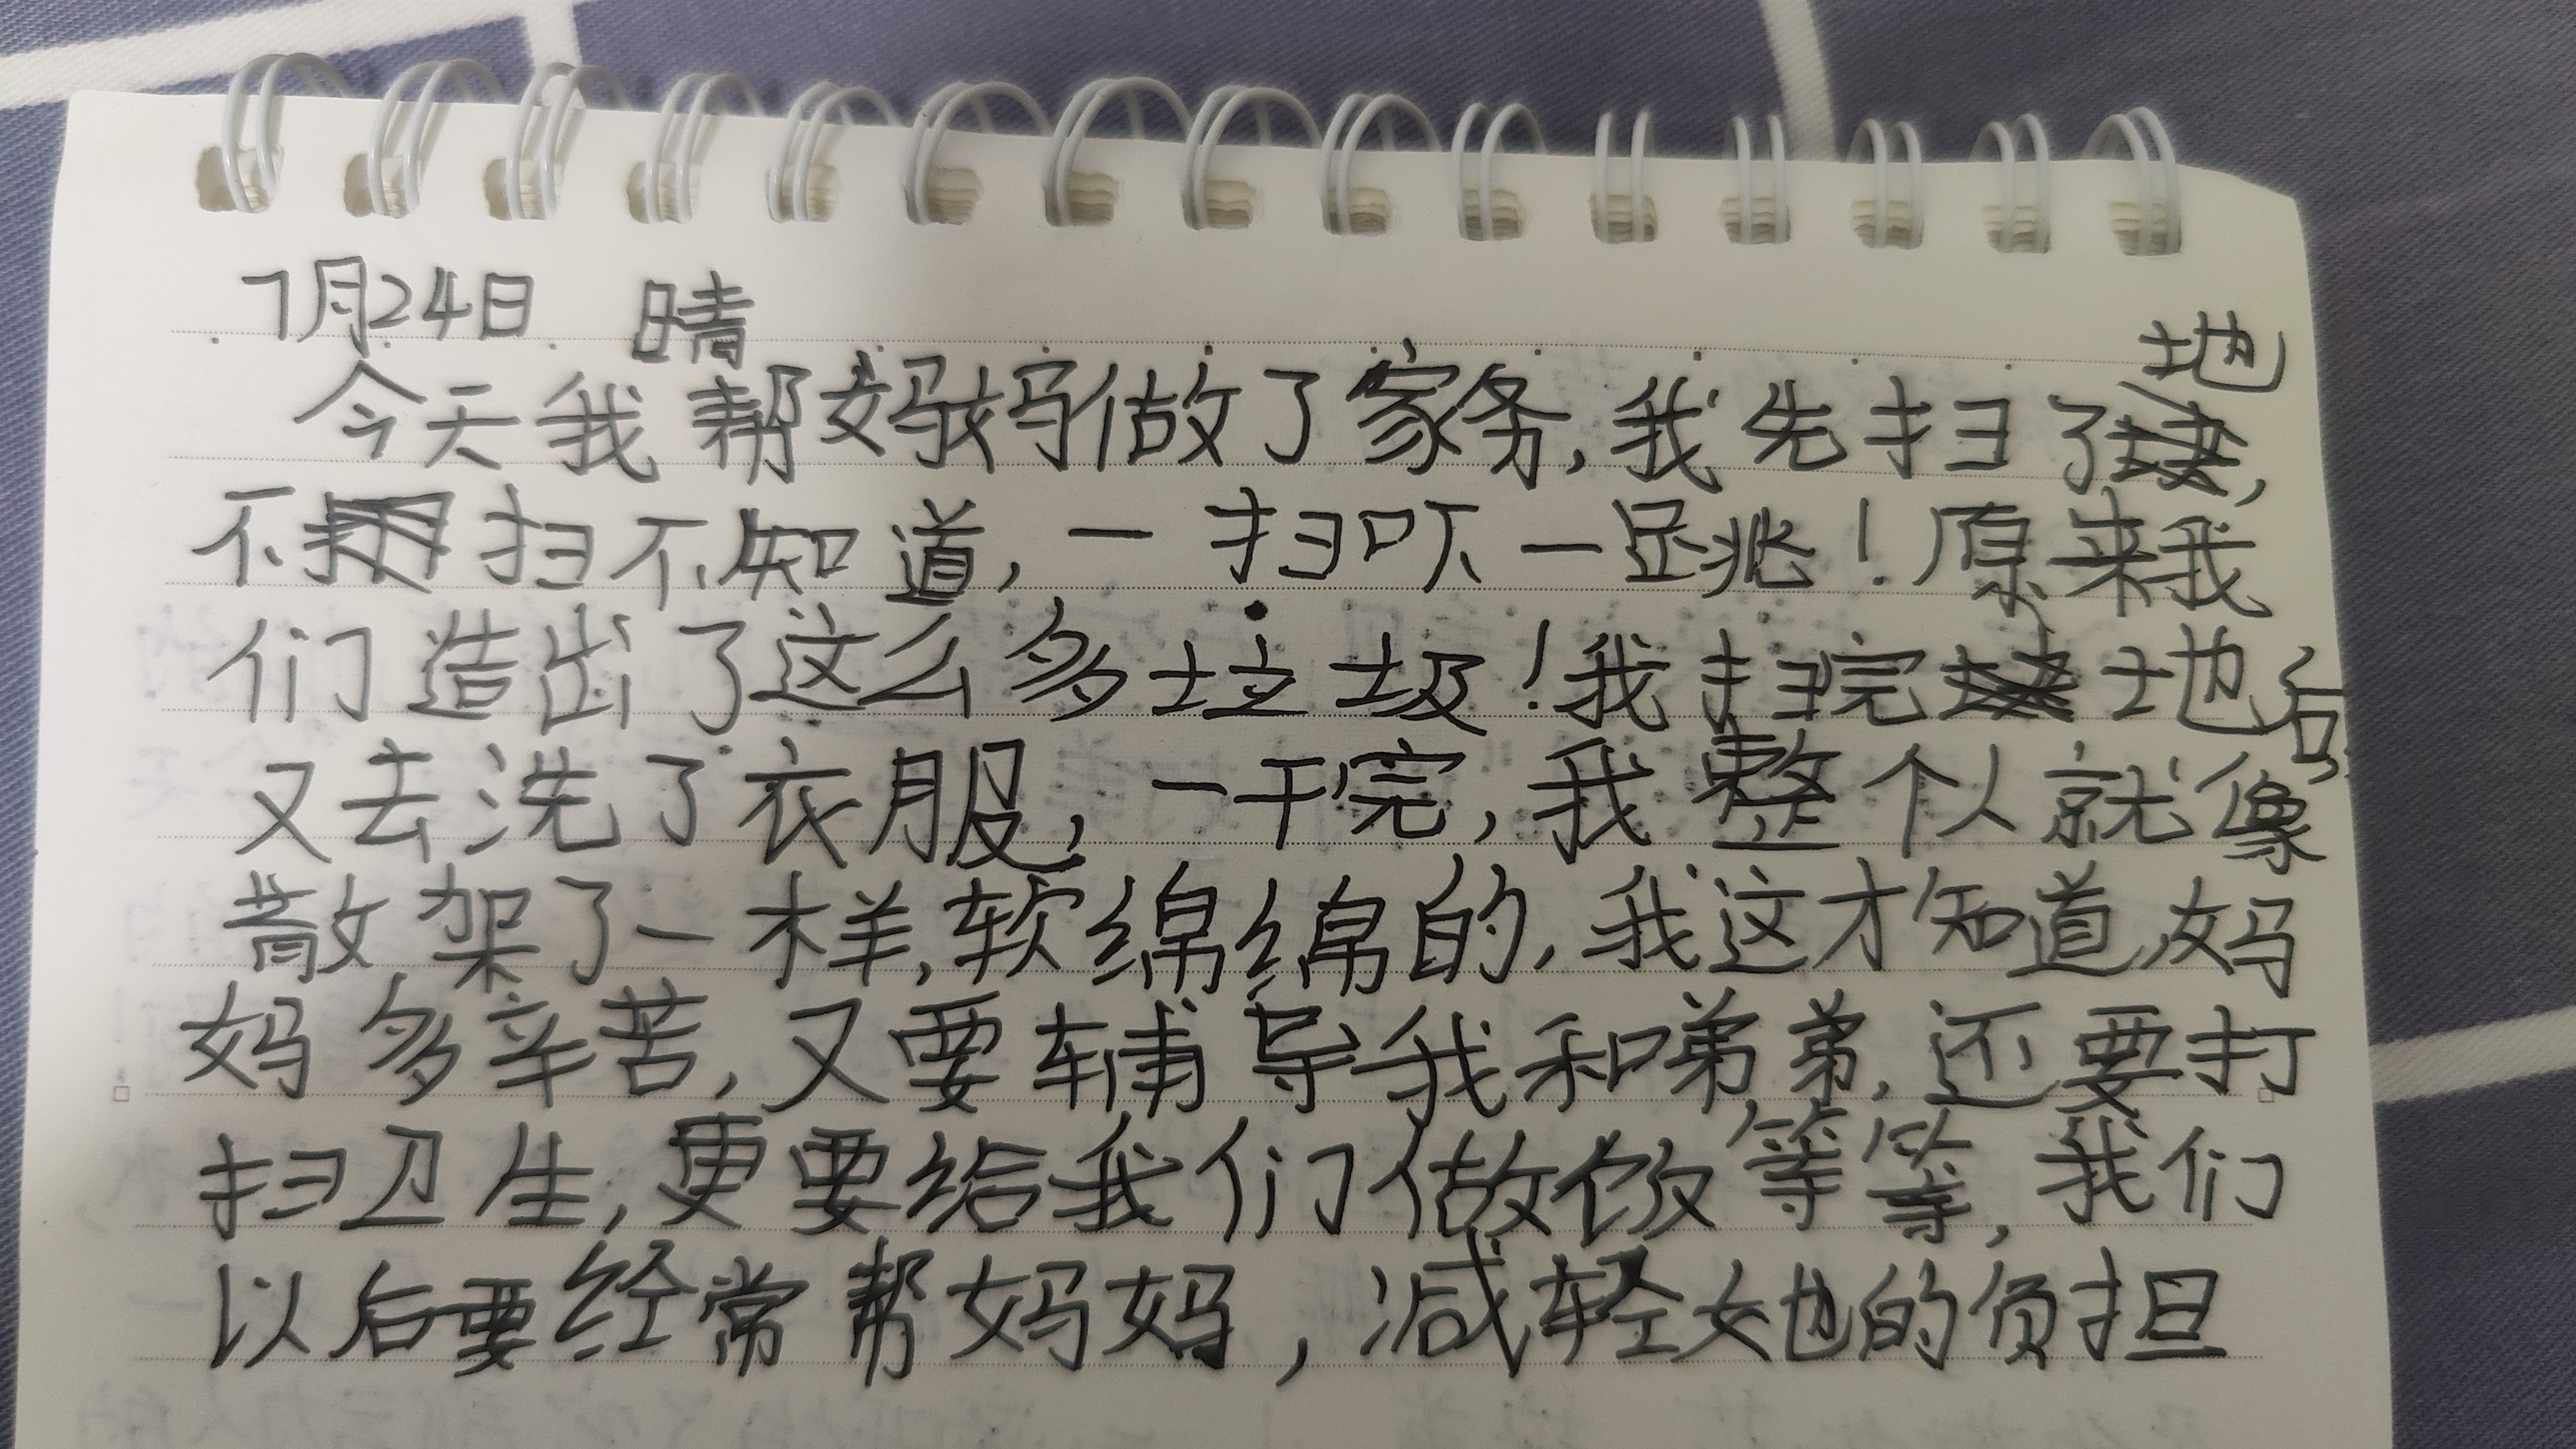 7月24日 晴
今天我帮妈妈做了家务,我先扫了地,
不扫不知道,一扫吓一跳!原来我
们造出了这么多垃圾!我扫完地后,
又去洗了衣服,一干完,我整个人就像
散架了一样,软绵绵的,我这才知道妈
妈多辛苦,又要辅导我和弟弟,还要打
扫卫生,更要给我们做饭等等,我们
以后要经常帮妈妈,减轻她的负担